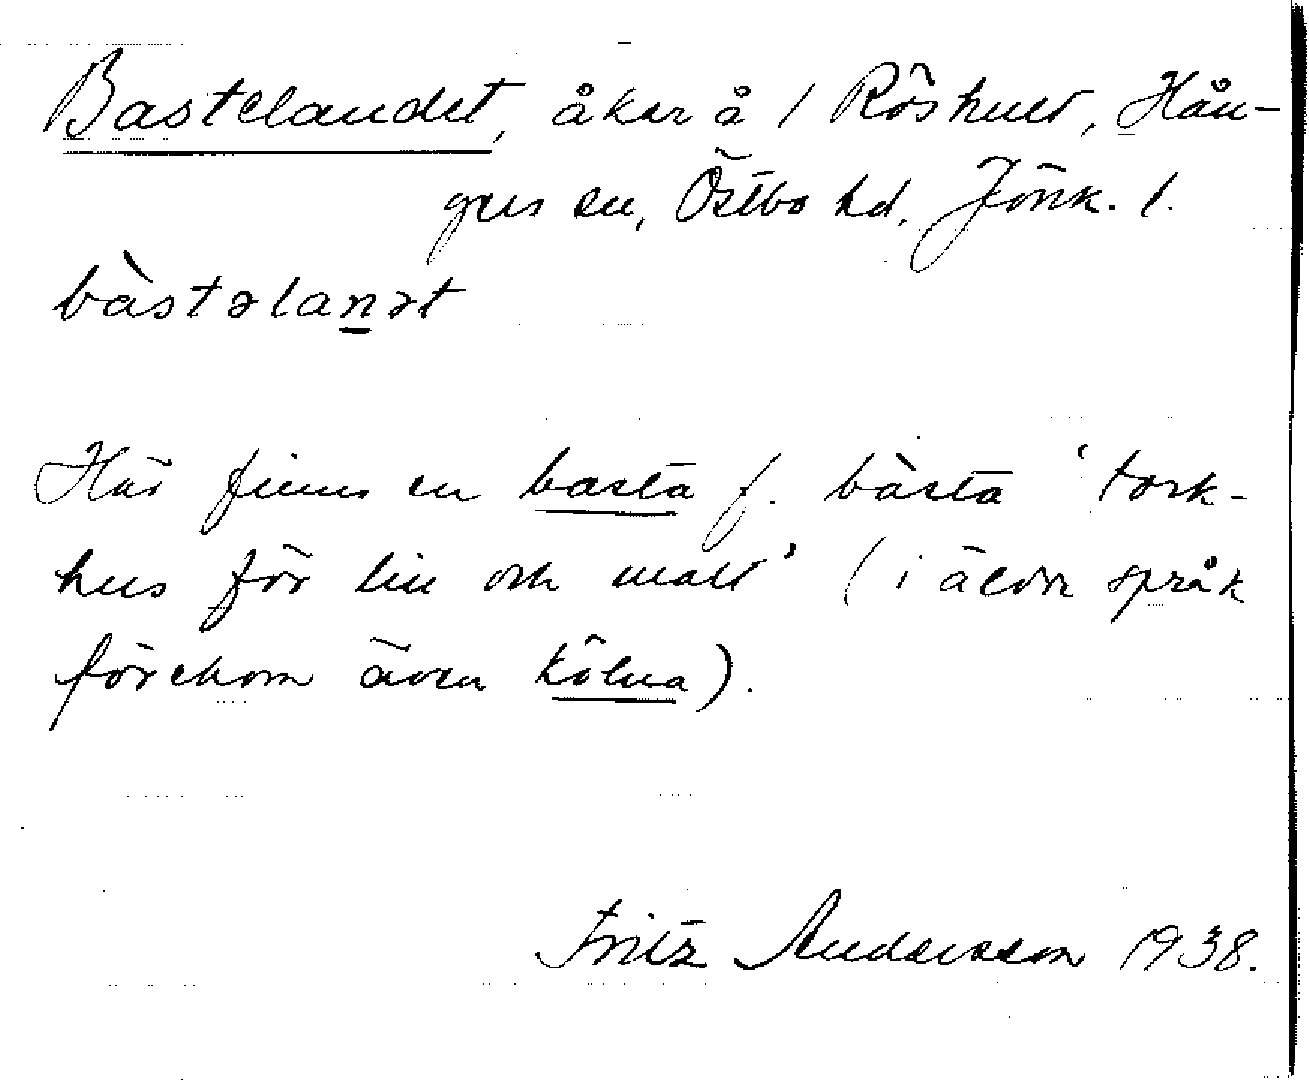 Bastelandet, åker å 1 Röshult, Hån-
gers sn, Östbo hd, Jönk. l.
bàstəlanət
Här finns en basta f. bàsta 'tork-
hus för lin och malt' (i äldre språk
förekom även kölna).
Fritz Andersson 1938.